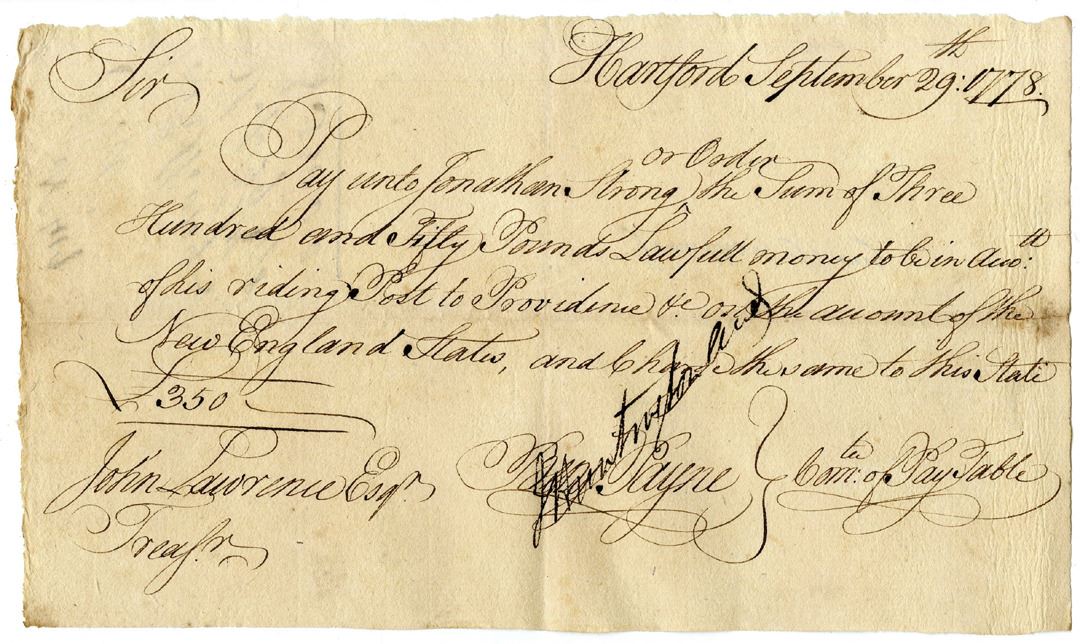 Hartford September 29:th 1778.
Sir
Pay unto Jonathan Strong or Order the Sum of Three
Hundred and Fifty Pounds Lawfull money to be in Acco:tt
of his riding Post to Providence &c on the account of the
New England States, and Charge the same to this State
£350
John Lawrence Esqr.
Treasr.
Payne } Com:tee of Pay Table